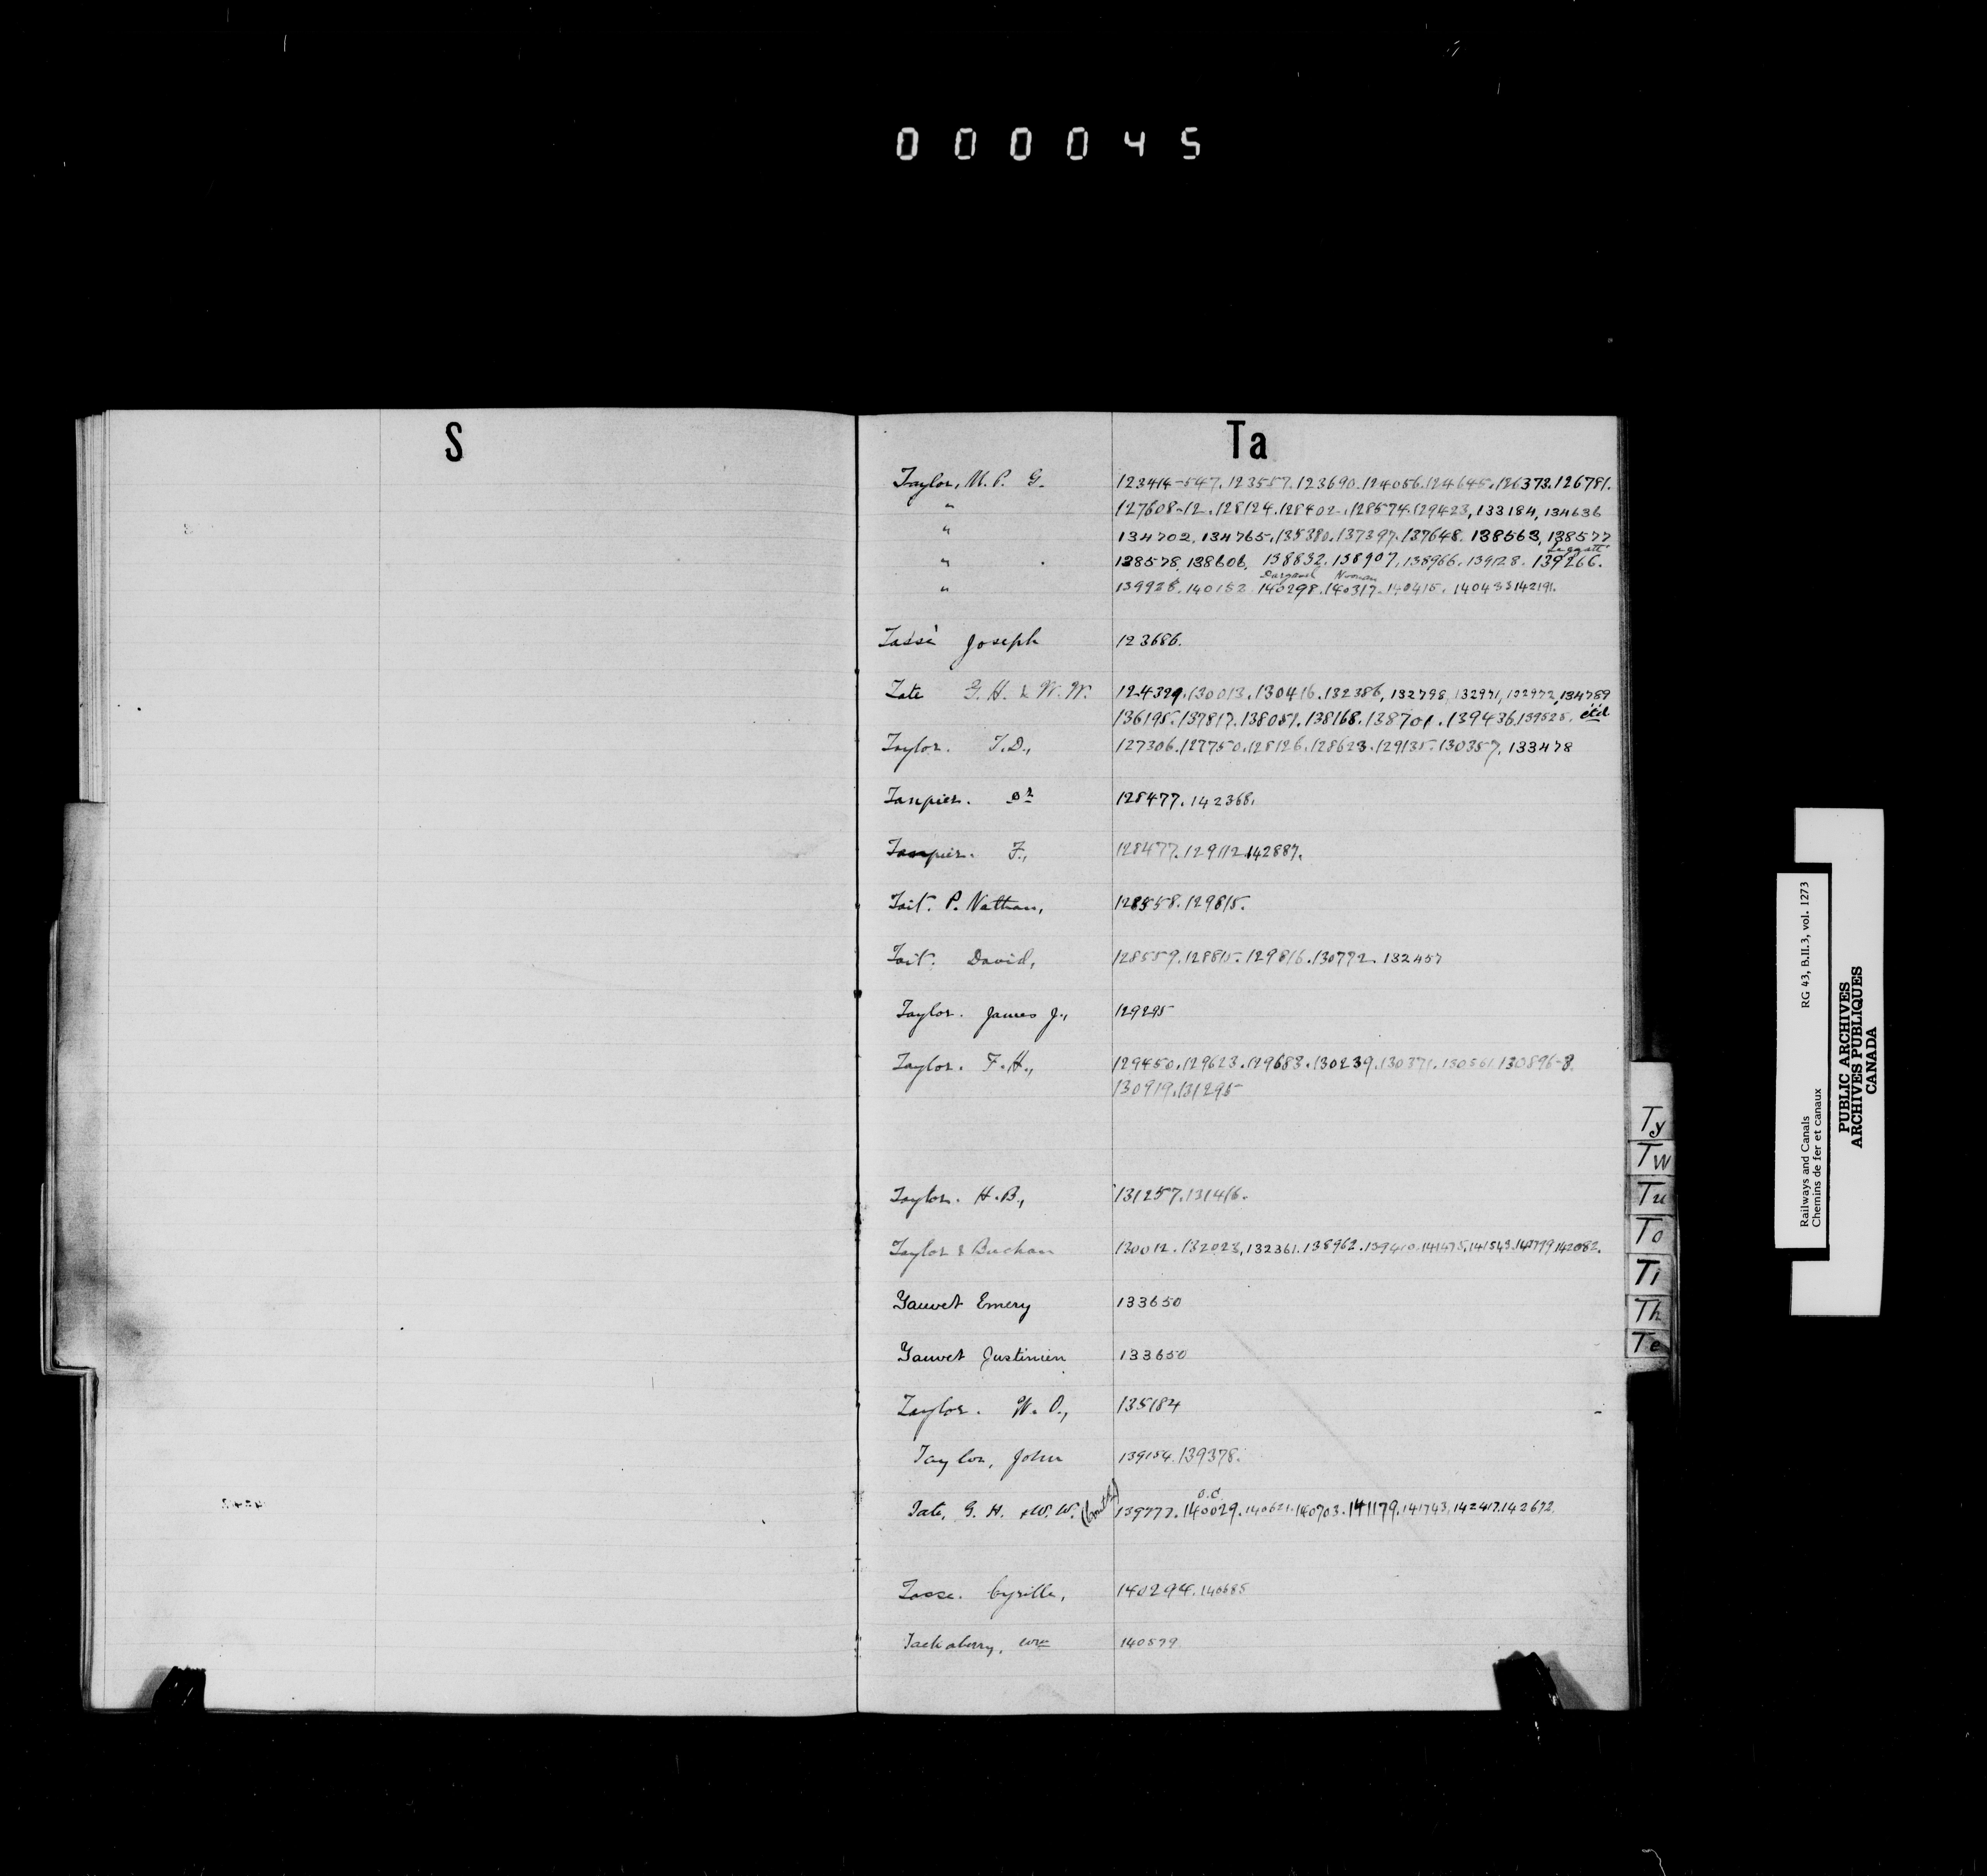 000045
S
Ta
Taylor, M. P. G. 123414-547. 123557. 123690. 124056. 124645. 126373. 126781.
" 127608-12. 128124. 128402. 128574. 129423, 133184, 134636
" 134702, 134765. 135380. 137397. 137648. 138563, 138577
Leggatt
" 138578, 138606, 138832. 138907, 138966. 139128. 139266.
" 139928. 140182. 140298. 140317. 140415. 140433 142191.
Tassé Joseph 123686.
Tate G. H. & W. W. 124329. 130013. 130416. 132386, 132798, 132971, 132972, 134789
136195. 137817. 138051. 138168. 138701. 139436. 139525.
Taylor. T. D., 127306. 127750. 128126. 128623. 129135. 130357. 133478
Tanpier. Dr 128477. 142368.
Tanpier. F., 128477. 129112. 142887.
Tait. P. Nathan, 128558. 129815.
Tait. David, 128559. 128815. 129816. 130772. 132457
Taylor. James J., 129295
Taylor. F. H., 129450. 129623. 129683. 130239. 130371. 130561. 130896-8.
130919. 131295
Taylor. H. B., 131257. 131416.
Taylor & Buchan 130012. 132023, 132361. 138962. 139410. 141475. 141543. 141799. 142082.
Tauvet Emery 133650
Tauvet Justinien 133650
Taylor. W. O., 135184
Taylor, John 139154. 139378.
O.C.
Tate, G. H. & W. W. 139777. 140029. 140621. 140703. 141179. 141743. 142417. 142672.
Tasse. Cyrille, 140294. 140685
Tackaberry, Wm 140579
Ty
Tw
Tu
To
Ti
Th
Te
Railways and Canals RG 43, B.II.3, vol. 1273
Chemins de fer et canaux
PUBLIC ARCHIVES
ARCHIVES PUBLIQUES
CANADA